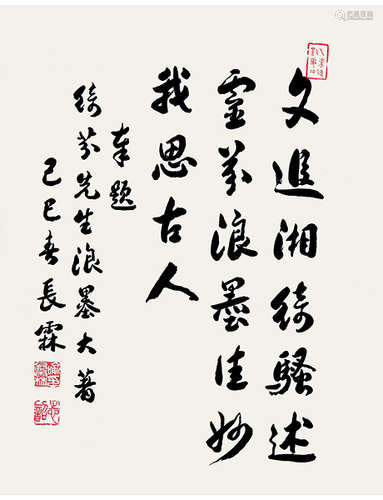 文追湘绮骚述
灵芬浪墨佳妙
我思古人
奉题
绮芬先生浪墨大著
己巳春長霖